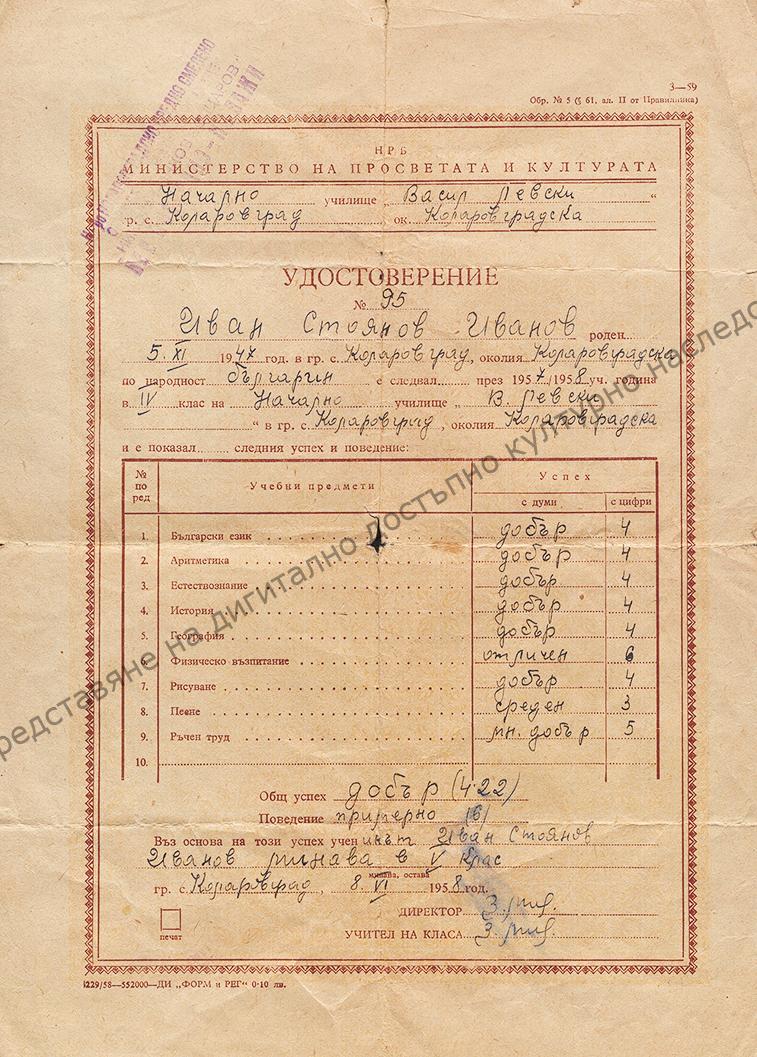 3—59
Обр. № 5 (§ 61, ал. II от Правилника)
НРБ
МИНИСТЕРСТВО НА ПРОСВЕТАТА И КУЛТУРАТА
Начално училище „ Васил Левски “
гр. с. Коларовград ок. Коларовградска
УДОСТОВЕРЕНИЕ
№ 95
Иван Стоянов Иванов роден
5. XI 1947 год. в гр. с. Коларовград, околия Коларовградска
по народност българин е следвал през 1957/1958 уч. година
в IV клас на Начално училище „ В. Левски
“ в гр. с. Коларовград, околия Коларовградска
и е показал следния успех и поведение:
№ по ред Учебни предмети Успех
с думи с цифри
1. Български език добър 4
2. Аритметика добър 4
3. Естествознание добър 4
4. История добър 4
5. География добър 4
6. Физическо възпитание отличен 6
7. Рисуване добър 4
8. Пение среден 3
9. Ръчен труд мн. добър 5
10.
Общ успех добър (4·22)
Поведение примерно (6)
Въз основа на този успех ученикът Иван Стоянов
Иванов минава в V клас
минава, остава
гр. с. Коларовград, 8. VI 1958 год.
ДИРЕКТОР
печат
УЧИТЕЛ НА КЛАСА
229/58—552000—ДИ „ФОРМ и РЕГ“ 0·10 лв.
редставяне на дигитално достъпно културно наследс